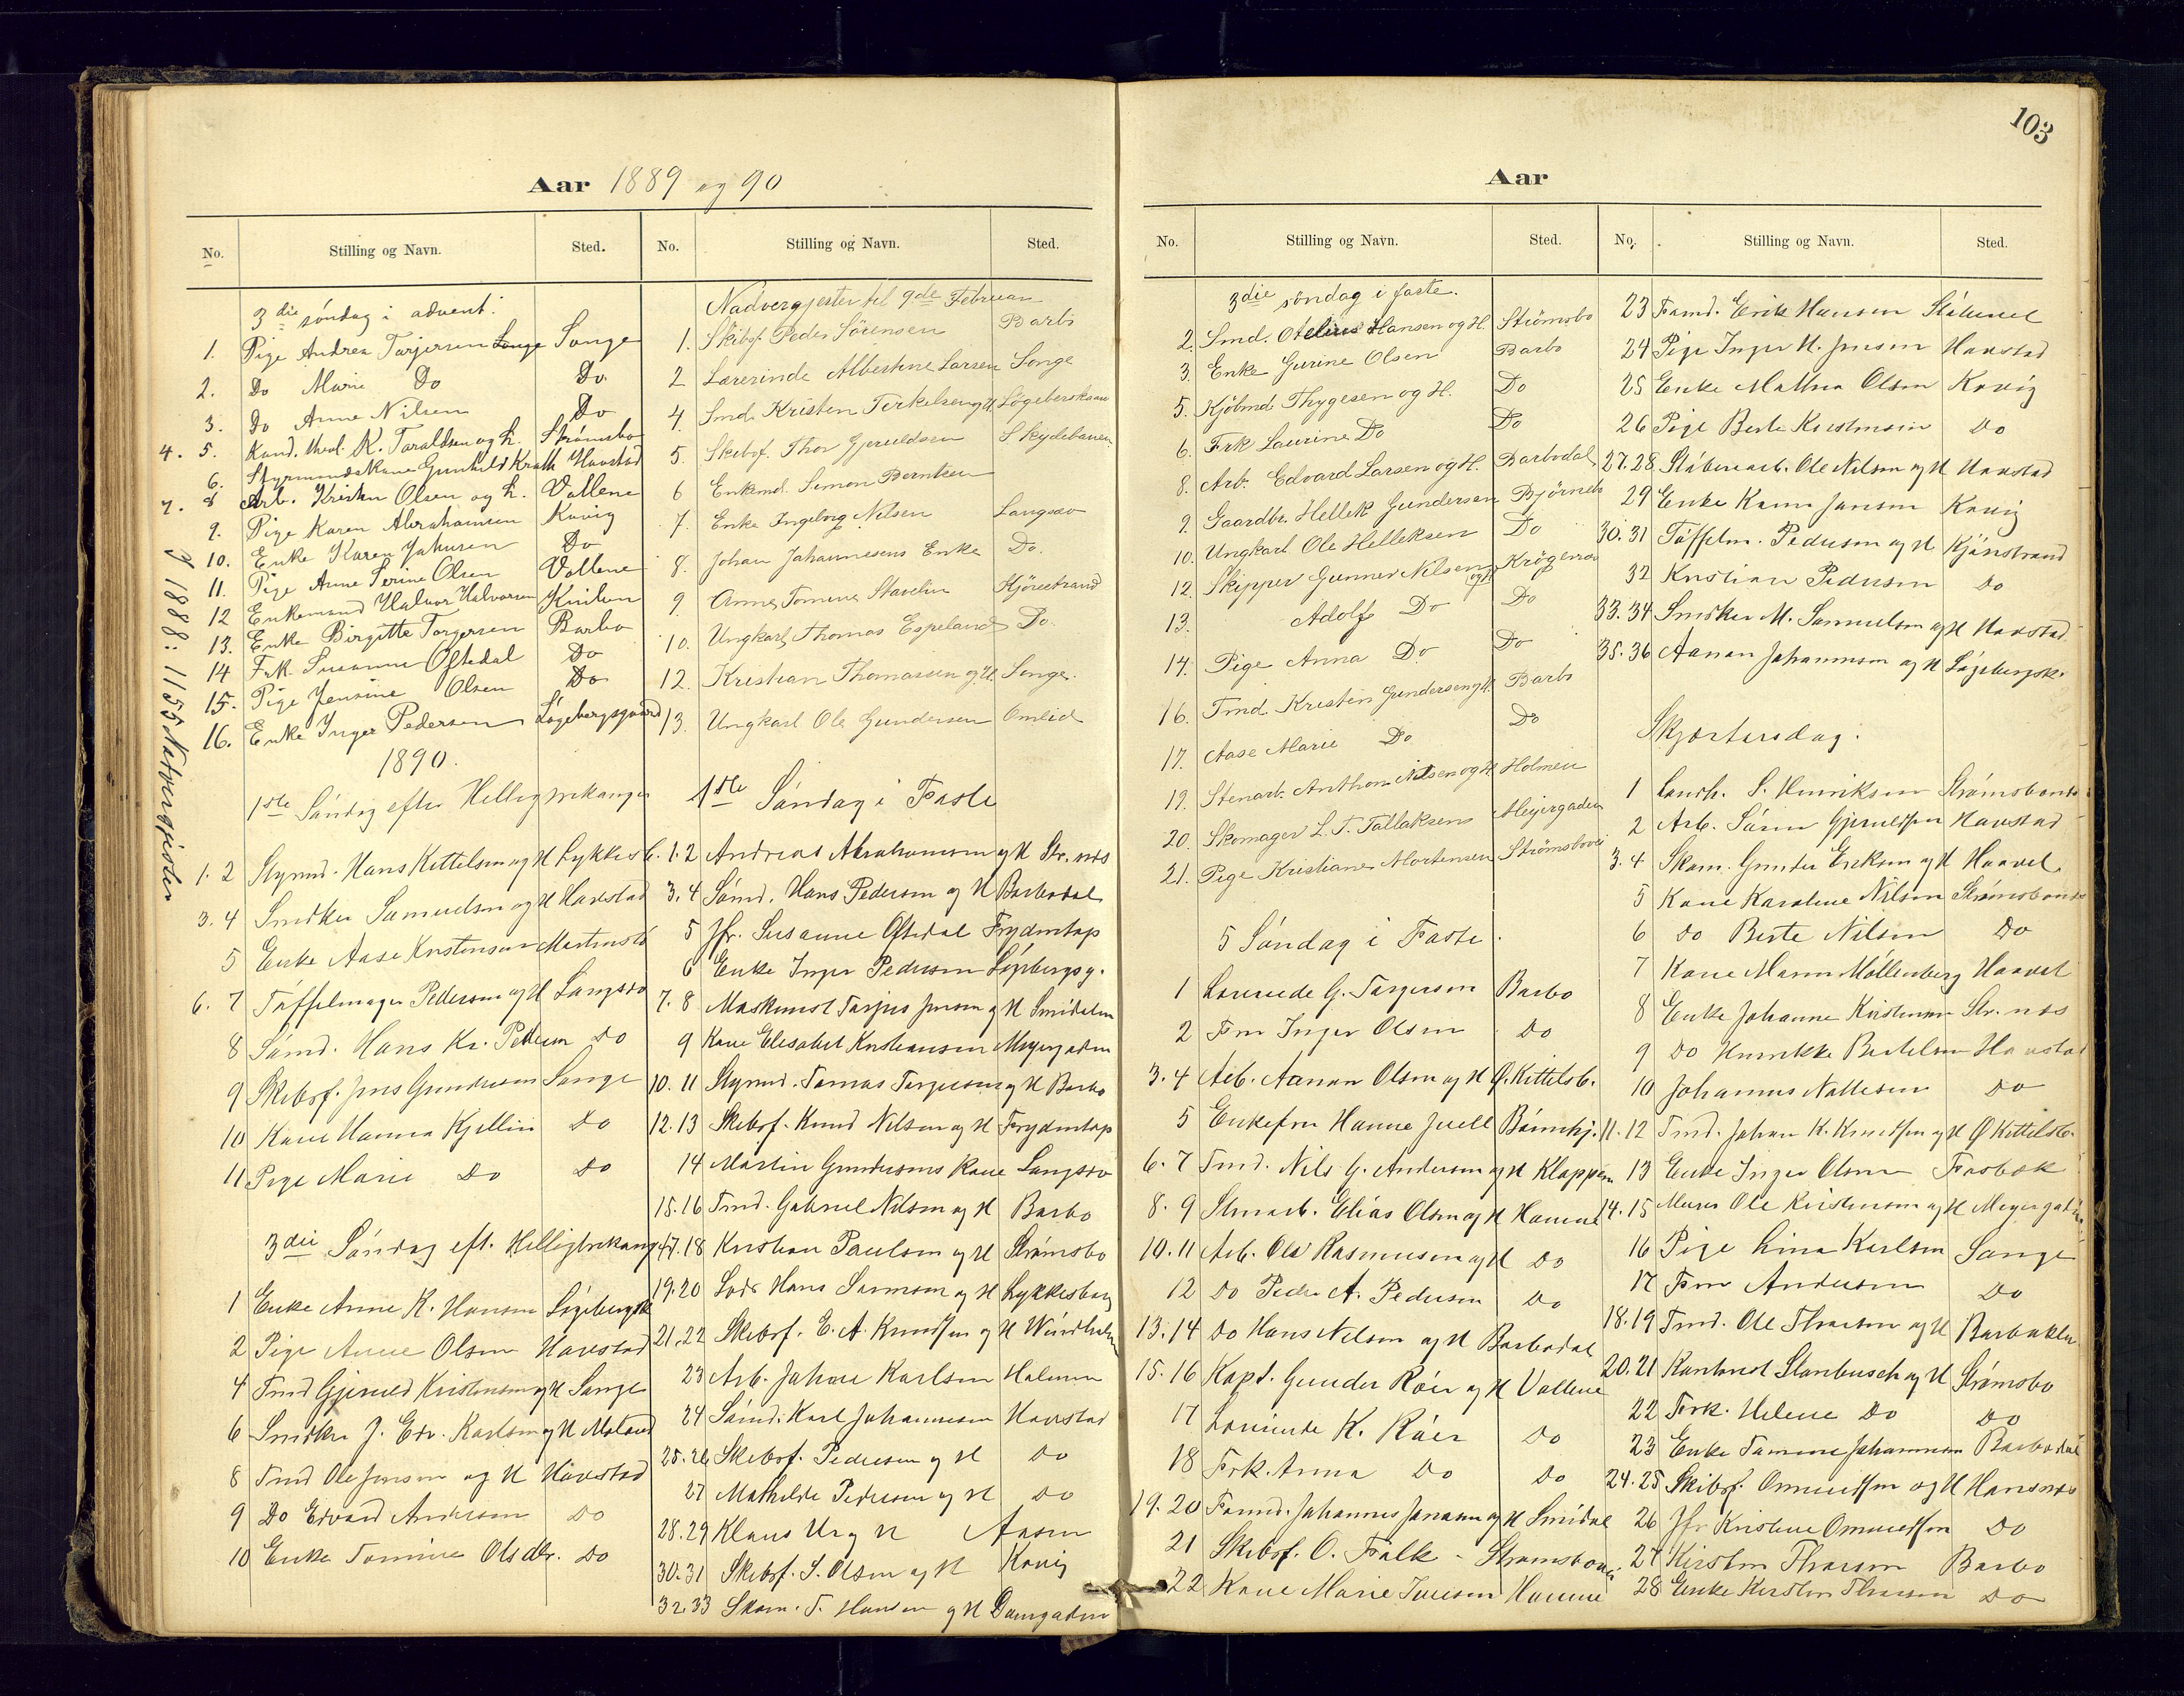 103
Aar 1889 og 90
No. Stilling og Navn. Sted.
3die søndag i advent.
1. Pige Andrea Torjersen Songe Songe
2. Do Marie Do Do
3. Do Anne Nilsen Do
4. 5. Kand. theol. K. Taraldsen og h. Strømsbo
6. Styrmandskone Gunhild Havstad
7. 8 Arb. Kristen Olsen og h. Vollene
9. Pige Karen Abrahamsen Kuvig
10. Enke Karen Do
11. Pige Anne Serine Olsen Vollene
12 Enkemand Halvor Halvorsen
13. Enke Birgitte Torgersen Barbo
14 Frk Susanne Oftedal Do
15. Pige Jensine Olsen Do
16. Enke Inger Pedersen Løgebergsgaard
I 1888: 1155 Natvergjester
1890.
1ste Søndag efter Helligtrekonger
1. 2 Styrmd. Hans Kittelsen og H Lykkesb.
3. 4 Snedker Samuelsen og H Havstad
5 Enke Aase Kristensen
6. 7 Tøffelmager Pedersen og H Langsæ
8 Sømd. Hans Kr. Pedersen Do
9 Skibsf. Jens Gundersen Songe
10 Kone Hanna Kjellin Do
11 Pige Marie Do Do
3die Søndag eft. Helligtrekonger
1 Enke Anne K. Hansen
2 Pige Anne Olsen Havstad
4 Tmd Gjeruld Kristensen og H Songe
6 Snedker J. Edv. Karlsen og H
8 Tmd Ole Jensen og H Havstad
9 Do Edvard Andersen Do
10 Enke Tomine Olsdtr. Do
No. Stilling og Navn. Sted.
Nadvergjester til 9de Februar
1. Skibsf. Peder Sørensen Barbo
2 Lærerinde Albertine Larsen Songe
4. Smd. Kristen Terkelsen og H.
5. Skibsf. Thor Gjeruldsen Skydebanen
6 Enkemd. Simon Berntsen
7. Enke Ingeborg Nilsen Langsæv
8. Johan Johannesens Enke Do.
9 Anne Tomine Kjørestrand
10. Ungkarl Thomas Espeland Do.
12. Kristian Thomassen og H. Songe.
13. Ungkarl Ole Gundersen Omlid
1ste Søndag i Faste
1. 2 Andreas Abrahamsen og H Str. næs
3. 4 Sømd. Hans Pedersen og H Barbodal
5 Jfr. Susanne Oftedal Frydentop
6 Enke Inger Pedersen Løgebergsg.
7. 8 Maskinist Tarjus Jensen og H
9 Kone Elisabet Kristiansen Meyergaden
10. 11 Styrmd. Tomas Torgersen og H Barbo
12. 13 Skibsf. Knud Nilsen og H Frydentop
14 Martin Gundersens Kone Langsæv
15. 16 Tmd. Gabriel Nilsen og H Barbo
17. 18 Kristian Paulsen og H Strømsbo
19. 20 Lods Hans Sørensen og H Lykkesborg
21. 22 Skibsf. E. A. Knudssen og H Windholm
23 Arb. Johan Karlsen Holmen
24 Sømd. Karl Johannesen Havstad
25. 26 Skibsf. Pedersen og H Do
27 Mathilde Pedersen og H Do
28. 29 Klaus og H Aasen
30. 31 Skibsf. S. Olsen og H Kuvig
32. 33 Skom. T. Hansen og H Damgaden
Aar
No. Stilling og Navn. Sted.
3die søndag i faste.
2. Smd. Otelius Hansen og H. Strømsbo
3. Enke Gurine Olsen Barbo
5. Kjøbmd. Thygesen og H. Do
6. Frk Laurine Do Do
8. Arb. Edvard Larsen og H. Barbodal
9. Gaardbr. Hellek Gundersen Bjørneb
10. Ungkarl Ole Helleksen Do
12. Skipper Gunner Nilsen og H Krøgenes
13. Adolf Do Do
14. Pige Anna Do Do
16. Tmd. Kristen Gundersen og H. Barbo
17. Aase Marie Do Do
19. Stenarb. Anthon Nilsen og H Holmen
20. Skomager L. T. Tallaksens Meijergaden
21. Pige Kristiane Mortensen Strømsbovei
5 Søndag i Faste.
1 Lærerinde G. Torgersen Barbo
2 Fru Inger Olsen Do
3. 4 Arb. Aanon Olsen og H Ø. Kittelsb.
5 Enkefru Hanne Juell Børnehj.
6. 7 Tmd. Nils G. Andersen og H Kloppen
8. 9 Stenarb. Elias Olsen og H
10. 11 Arb. Ole Rasmussen og H Do
12 Do Peder A. Pedersen Do
13. 14 Do Hans Nilsen og H Barbodal
15. 16 Kapt. Gunder Røer og H Vollene
17 Lærerinde K. Røer Do
18 Frk. Anna Do Do
19. 20 Tømd. Johannes og H
21 Skibsf. O. Falk - Strømsbovei
22 Kone Marie Iversen
No. Stilling og Navn. Sted.
23 Tømd. Erik Hansen
24 Pige Inger H. Jensen Havstad
25 Enke Mathea Olsen Kuvig
26 Pige Berte Kristensen Do
27. 28 Støberiarb. Ole Nilsen og H Havstad
29 Enke Karen Jansen Kuvig
30. 31 Tøffelm. Pedersen og H Kjørestrand
32 Kristian Pedersen Do
33. 34 Snedker M. Samuelsen og H Havstad
35. 36 Aanon Johannesen og H Løgebergsk.
Skjærtorsdag.
1 Landh. S. Henriksen
2 Arb. Søren Gjeruldsen Havstad
3. 4 Skom. Gunder Eriksen og H Haavet
5 Kone Karoline Nilsen
6 Do Berte Nilsen Do
7 Kone Maren Møllenberg Haavet
8 Enke Johanne Kristensen Str. næs
9 Do Henrikke Bertelsen Havstad
10 Johannes Do
11. 12 Tmd. Johan K. Knudssen og H Ø Kittelsb.
13 Enke Inger Olsen Fosbæk
14. 15 Murer Ole Kristensen og H Meyergaden
16 Pige Lina Karlsen Songe
17 Fru Andersen Do
18. 19 Tmd. Ole Thorsen og H
20. 21 Kantorist Stanbusch og H Strømsbo
22 Frk. Helene Do Do
23 Enke Tomine Johannesen Barbodal
24. 25 Skibsf. Ommundsen og H
26 Jfr Kristine Ommundsen Do
27 Kirsten Thorsen Barbo
28 Enke Kirsten Thorsen Do